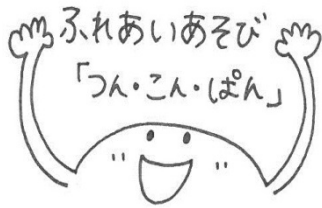 ふれあいあそび
「つん・こん・ぱん」